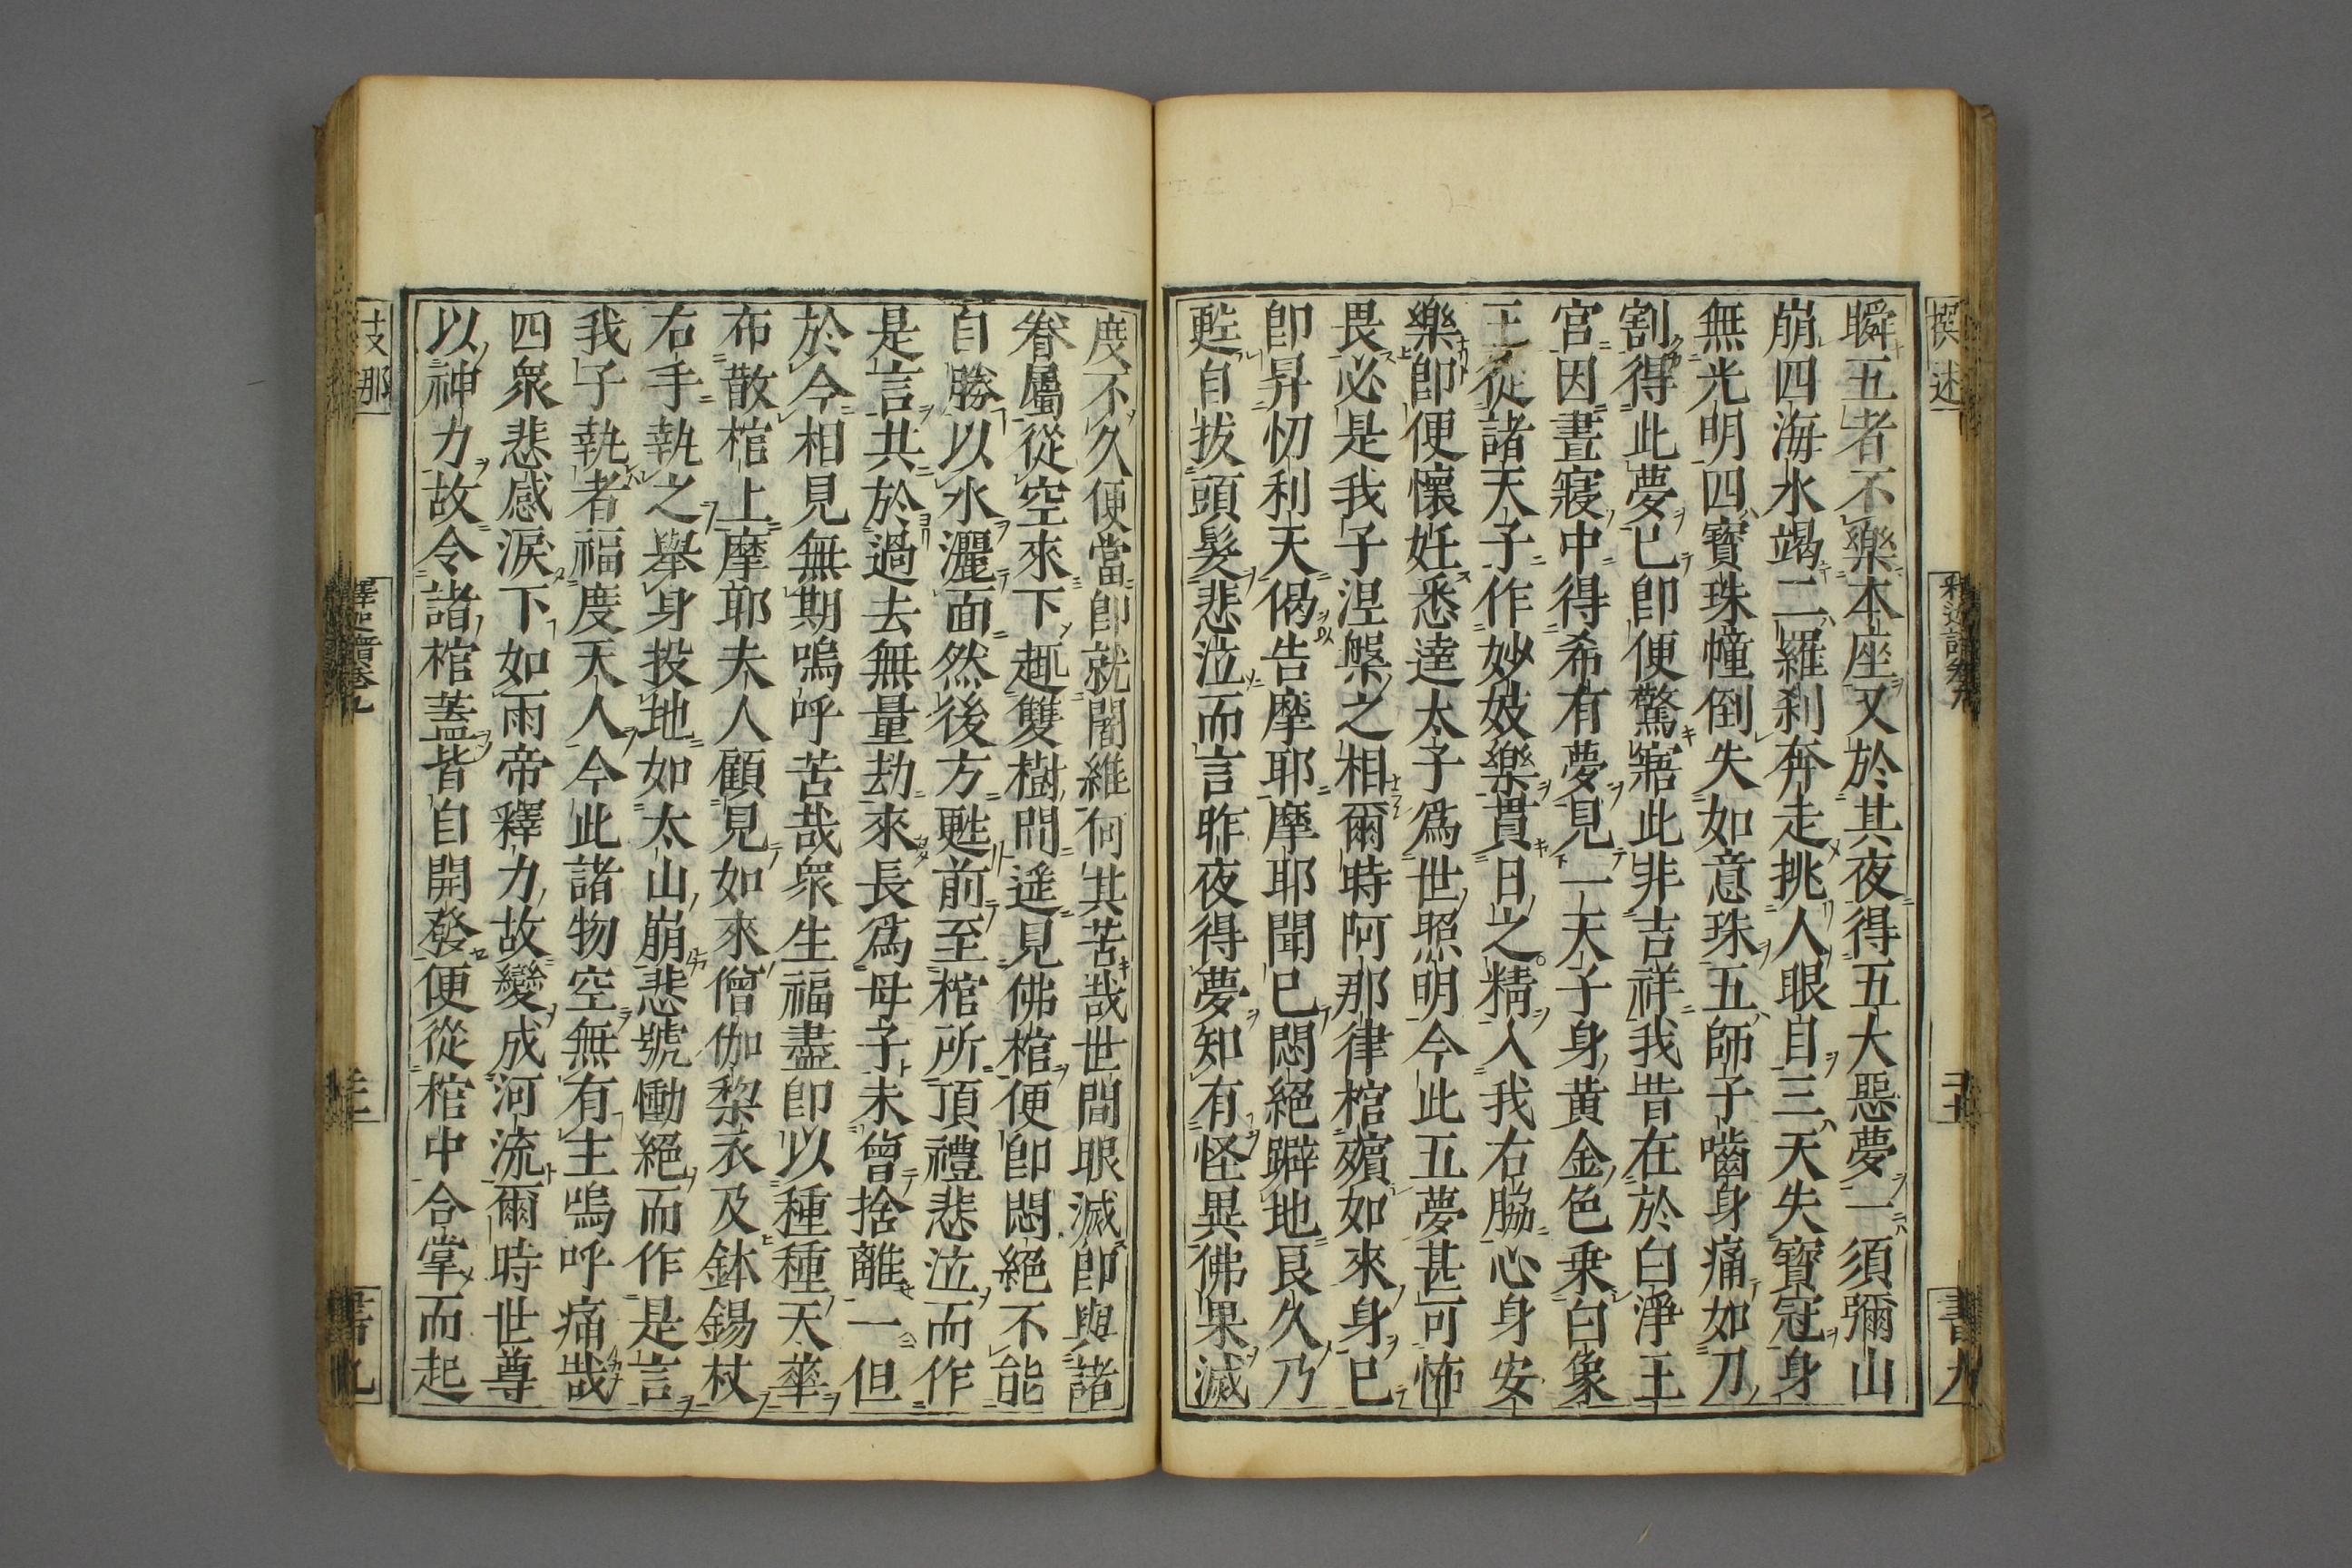 撰述
瞬五者不樂本座又於其夜得五大惡夢一須彌山
崩四海水竭二羅刹奔走挑人眼目三天失寶冠身
無光明四寶珠幢倒失如意珠五師子嚙身痛如刀
割得此夢已卽便驚寤此非吉祥我昔在於白淨王
宮因晝寢中得希有夢見一天子身黃金色乗白象
王從諸天子作妙妓樂貫日之精入我右脇心身安
樂卽便懷妊悉達太子爲世照明今此五夢甚可怖
畏必是我子涅槃之相爾時阿那律棺殯如來身已
卽昇忉利天偈告摩耶摩耶聞已悶絕躃地良久乃
甦自拔頭髮悲泣而言昨夜得夢知有怪異佛果滅
度不久便當卽就闍維何其苦哉世間眼滅卽與諸
眷屬從空來下趣雙樹間遥見佛棺便卽悶絕不能
自勝以水灑面然後方甦前至棺所頂禮悲泣而作
是言共於過去無量劫來長爲母子未曾捨離一但
於今相見無期嗚呼苦哉衆生福盡卽以種種天華
布散棺上摩耶夫人顧見如來僧伽梨衣及鉢錫杖
右手執之舉身投地如太山崩悲號慟絕而作是言
我子執者福度天人今此諸物空無有主嗚呼痛哉
四衆悲感淚下如雨帝釋力故變成河流爾時世尊
以神力故令諸棺蓋皆自開發便從棺中合掌而起
支那